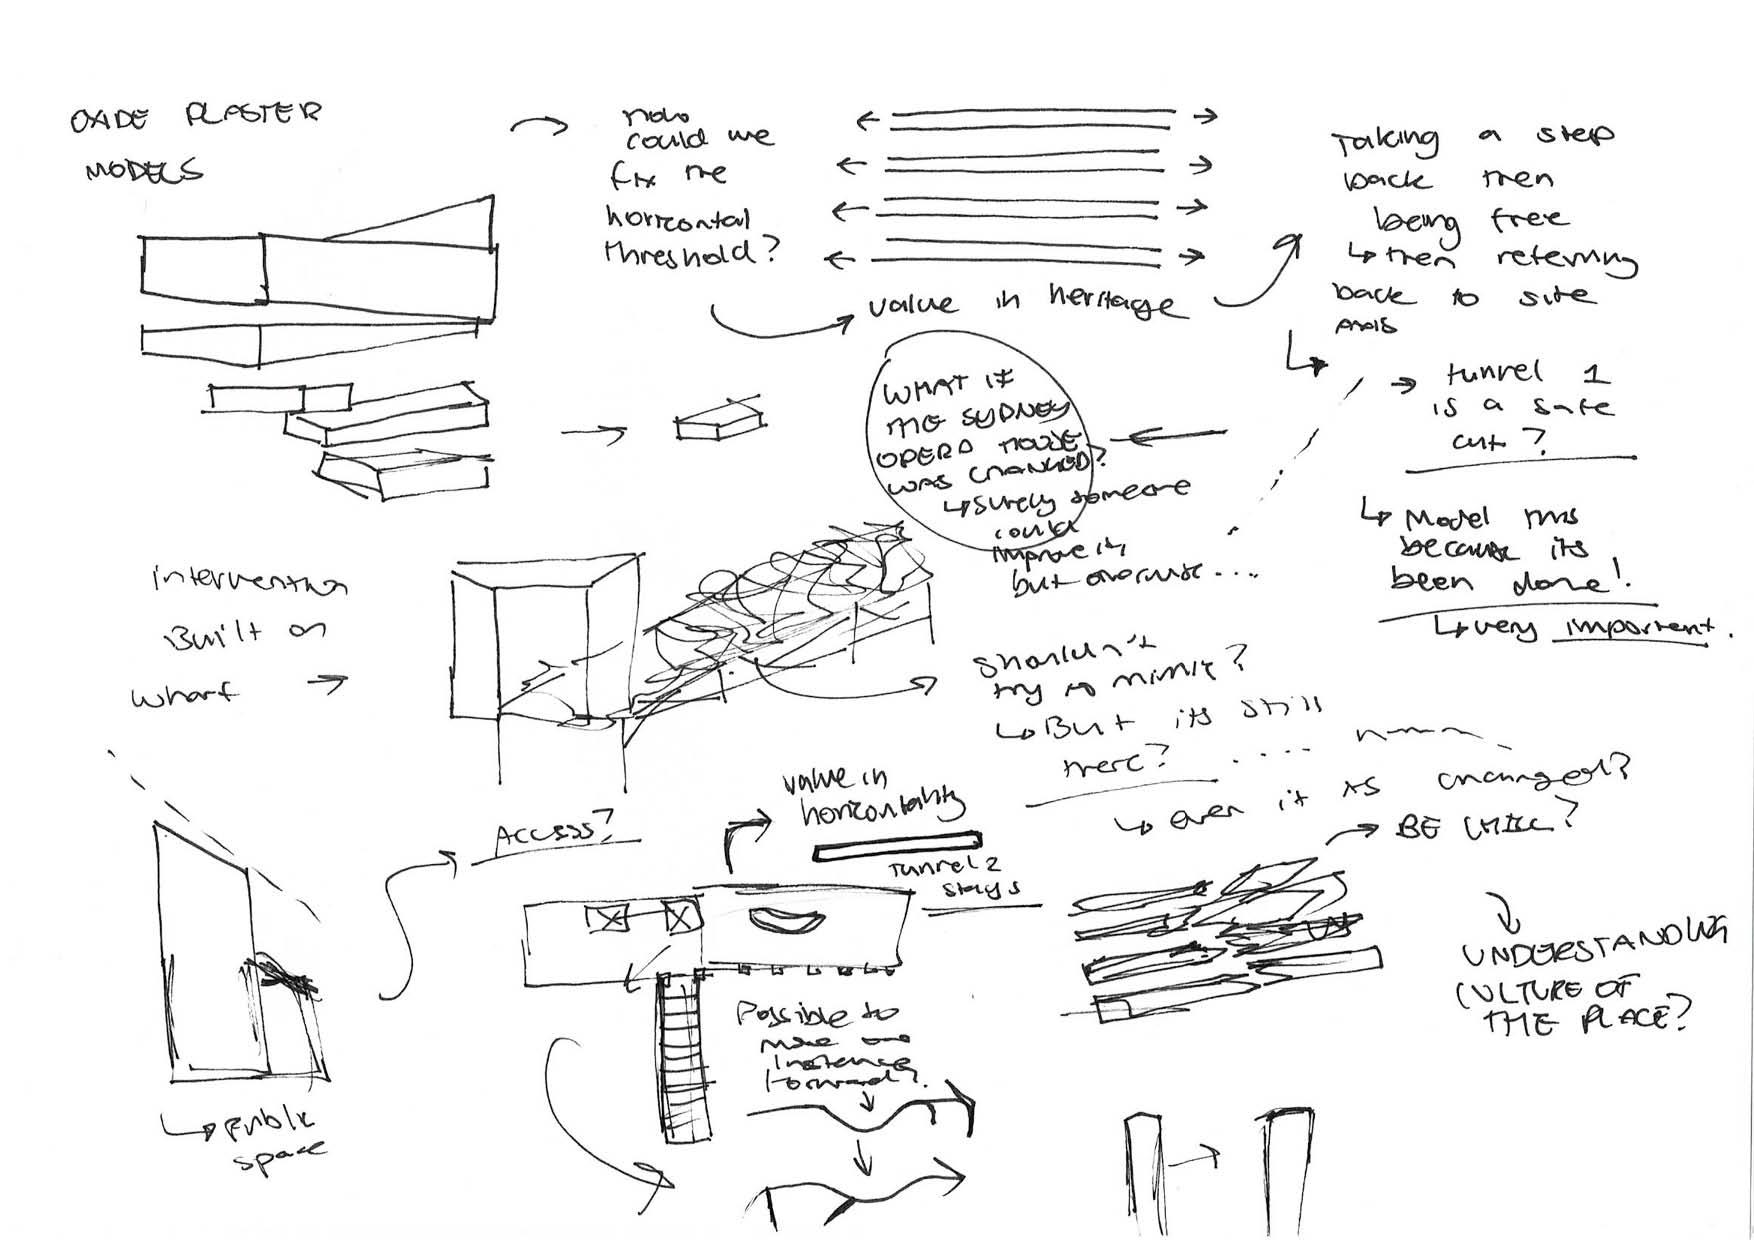 OXIDE PLASTER
MODELS
how
could we
fix the
horizontal
threshold?
value in heritage
Taking a step
back then
being free
then referring
back to site
WHAT IF
THE SYDNEY
OPERA HOUSE
WAS CHANGED?
surely someone
could
improve it,
but
tunnel 1
is a safe
cut?
Model this
because its
been done!
very important.
intervention
Built on
wharf
shouldn't
try to mimic?
But its still
there? ....
even if its changed?
BE CHILL?
UNDERSTANDING
CULTURE OF
THE PLACE?
Access?
value in
horizontality
Tunnel 2
stays
Possible to
move one
instance
forward?
Public
space